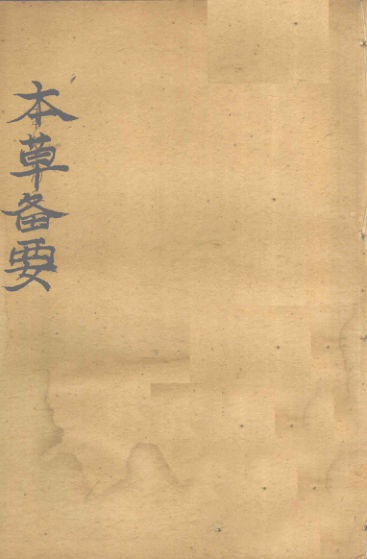 本草备要